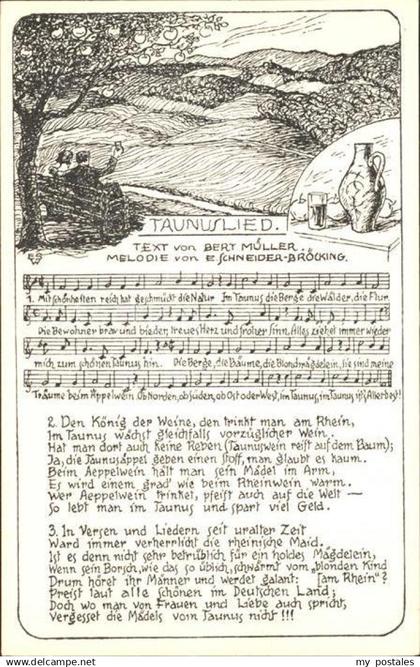 TAUNUSLIED.
TEXT von BERT MÜLLER.
MELODIE von E. SCHNEIDER-BRÖCKING.
ES
1. Mit Schönheiten reich hat geschmückt die Natur Im Taunus die Berge die Wälder, die Flur
Die Bewohner brav und bieder, treues Herz und froher Sinn. Alles ziehet immer wieder
mich zum schönen Taunus hin. Die Berge, die Bäume, die Blondmägdelein, sie sind meine
Träume beim Äppelwein Ob Norden, ob Süden, ob Ost oder West, im Taunus, im Taunus ist's Allerbest!
2. Den König der Weine, den trinkt man am Rhein,
Im Taunus wächst gleichfalls vorzüglicher Wein.
Hat man dort auch keine Reben (Taunuswein reift auf dem Baum);
Ja, die Taunusäpfel geben einen Stoff, man glaubt es kaum.
Beim Aeppelwein hält man sein Mädel im Arm,
Es wird einem grad' wie beim Rheinwein warm.
Wer Aeppelwein trinket, pfeift auch auf die Welt –
So lebt man im Taunus und spart viel Geld.
3. In Versen und Liedern seit uralter Zeit
Ward immer verherrlicht die rheinische Maid.
Ist es denn nicht sehr betrüblich für ein holdes Mägdelein,
Wenn sein Borsch, wie das so üblich, schwärmt vom „blonden Kind
Drum höret ihr Männer und werdet galant: [am Rhein"?
Preist laut alle Schönen im Deutschen Land;
Doch wo man von Frauen und Liebe auch spricht,
Vergesset die Mädels vom Taunus nicht!!!
© www.my-postales.com